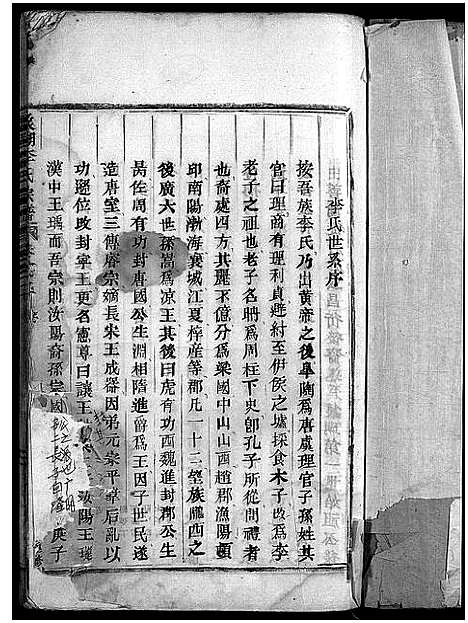 李氏世系序
按吾族李氏乃出黃帝之後臯陶為唐虞理官子孫姓其
官曰理商有理利貞避紂至伊侯之墟採食木子改為李
老子之祖也老子名聃為周柱下史卽孔子所從問禮者
也裔處四方其麗不億分為梁國中山山西趙郡漁陽頓
邱南陽渤海襄城江夏梓産等郡凡一十三望族隴西之
後廣六世孫暠為凉王其後曰虎有功西魏進封郡公生
昺佐周有功封唐國公生淵相隋進爵為王因子世民遂
造唐室三傳睿宗嫡長宋王成器因弟元宗平韋后亂以
功遜位改封寧王更名憲尊曰讓王
汝陽王璡
漢中王瑀而吾宗則汝陽裔孫崇國
庚子